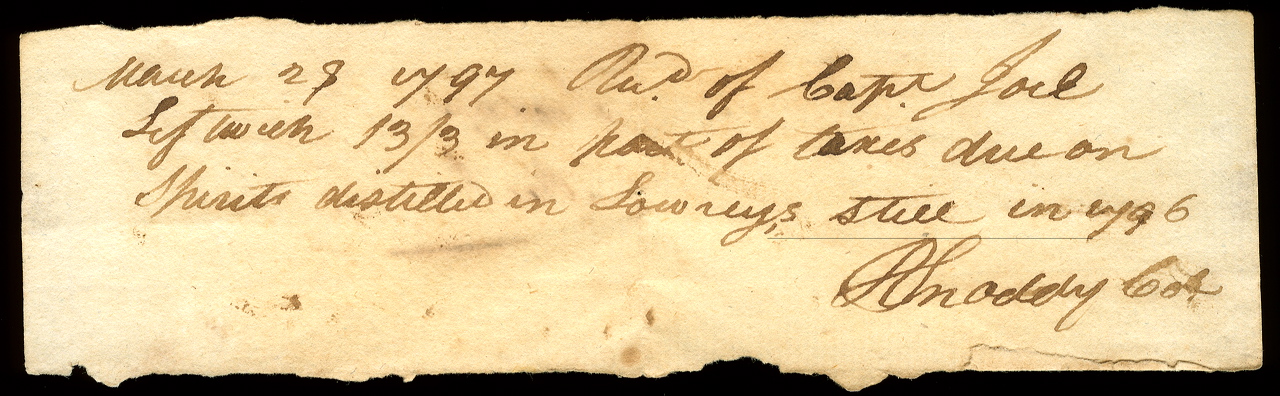 March 28 1797 Recd. of Capt. Joel
Leftwich 13/3 in part of taxes due on
Spirits distilled in Lowrey,s still in 1796
RSnoddy Col